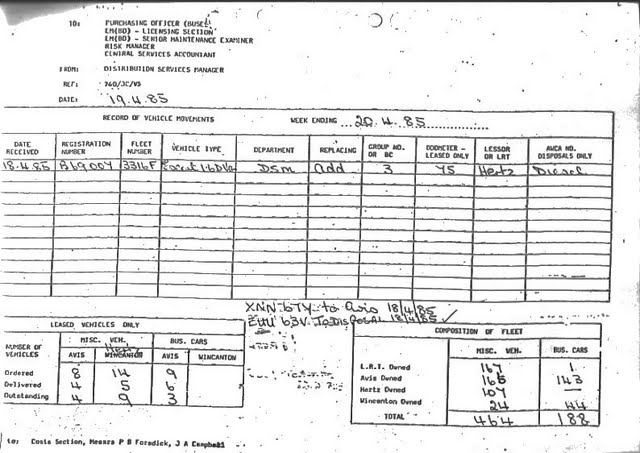 TO: PURCHASING OFFICER (BUSES)
EM(BD) - LICENSING SECTION
EM(BD) - SENIOR MAINTENANCE EXAMINER
RISK MANAGER
CENTRAL SERVICES ACCOUNTANT
FROM: DISTRIBUTION SERVICES MANAGER
REF: 760/JC/VS
DATE: 19.4.85
RECORD OF VEHICLE MOVEMENTS WEEK ENDING 20.4.85
DATE RECEIVED REGISTRATION NUMBER FLEET NUMBER VEHICLE TYPE DEPARTMENT REPLACING GROUP NO. OR BC ODOMETER - LEASED ONLY LESSOR OR LRT AWCA NO. DISPOSALS ONLY
18.4.85 B690OY 3316F Escort 1.6D Van DSM add 3 45 Hertz Diesel
XNN 67Y to Avis 18/4/85
63V To DISPOSAL 18/4/85 ✓
LEASED VEHICLES ONLY
NUMBER OF VEHICLES MISC. VEH. BUS. CARS
AVIS WINCANTON AVIS WINCANTON
Ordered 8 14 9
Delivered 4 5 6
Outstanding 4 9 3
COMPOSITION OF FLEET
MISC. VEH. BUS. CARS
L.R.T. Owned 167 1
Avis Owned 165 143
Hertz Owned 107 —
Wincanton Owned 24 44
TOTAL 464 188
to: Costs Section, Messrs P B Foradick, J A Campbell